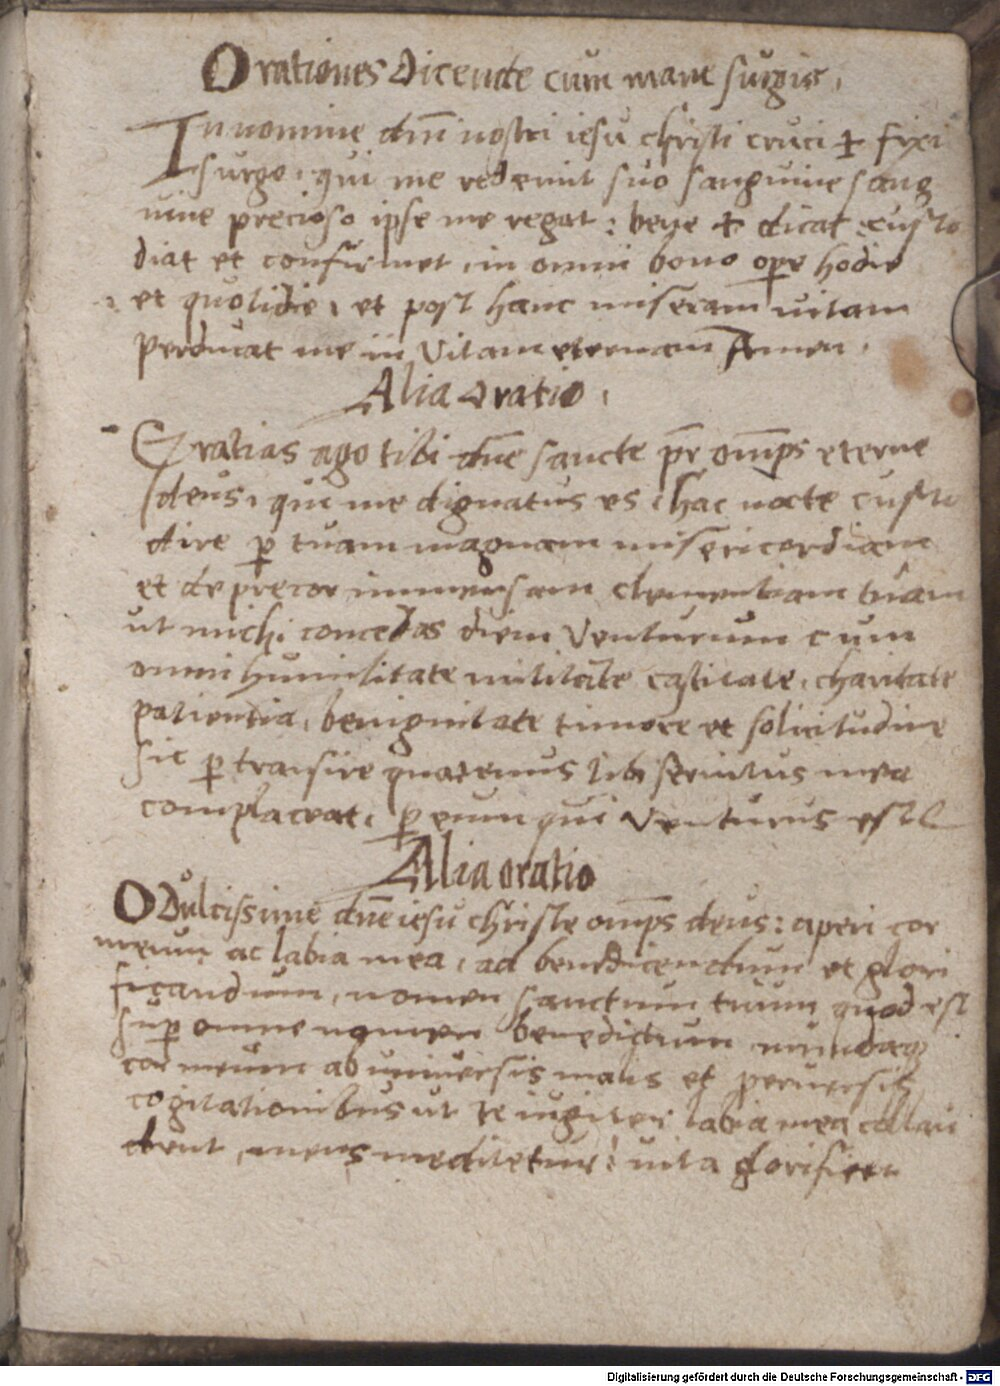 Orationes dicende cum mane surgis.
In nomine dni nostri iesu christi cruci ✝ fixi
surgo, qui me redemit suo sanguine sang
uine precioso ipse me regat: bene ✝ dicat custo
diat et confirmet, in omni bono ope hodie
et quotidie, et post hanc miseram vitam
perducat me in Vitam eternam Amen.
Alia Oratio.
Gratias ago tibi dne sancte pr omps eterne
deus, qui me dignatus es, hac nocte custo
dire p tuam magnam misericordiam
et deprecor immensam clementiam tuam
ut michi concedas diem Venturum cum
omni humilitate castitate, charitate
patientia, benignitate timore et solicitudine
sic p transire quatenus tibi seruitus mea
complaceat, p eum qui Venturus est
Alia oratio
O Dulcissime dne iesu christe omps deus: aperi cor
meum ac labia mea, ad benedicendum et glori
ficandum, nomen sanctum tuum quod est
sup omne nomen benedictum mundaq
cor meum ab universis malis et peruersis
cogitationibus ut te iugiter labia mea collau
dent, mens meditetur: uita glorificet